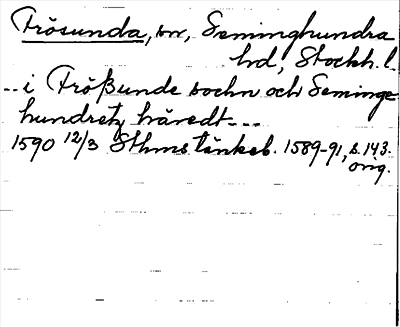 Frösunda, sn, Seminghundra
hd, Stockh. l.
-- i Frößunde sochn och Seminge-
hundretz häredt ---
1590 12/3 Sthms tänkeb. 1589-91, s. 143.
orig.